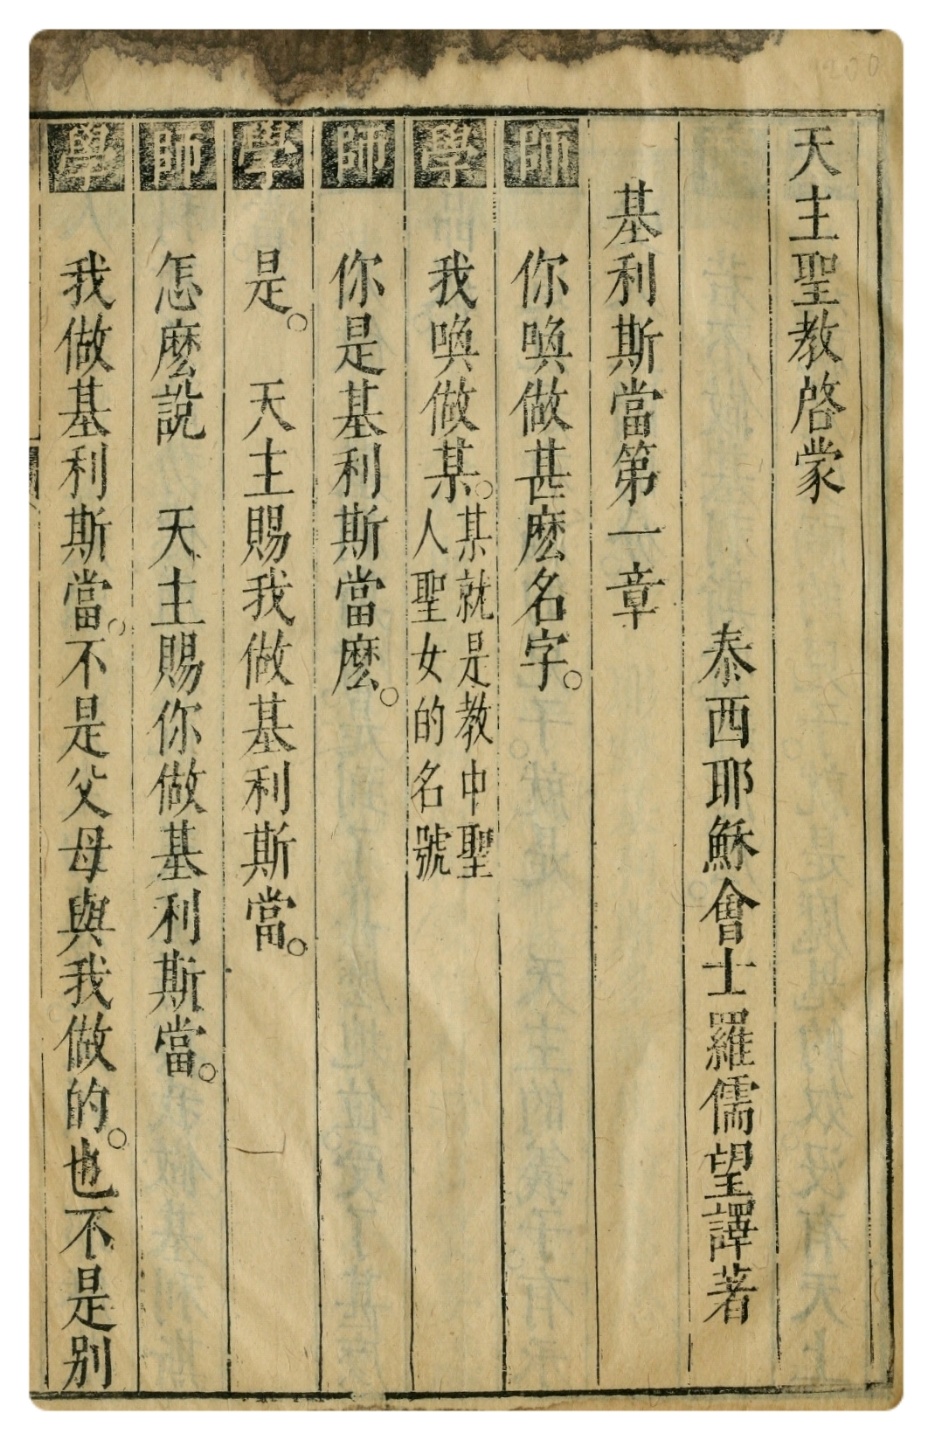 天主聖教啓蒙
泰西耶穌會士羅儒望譯著
基利斯當第一章
師 你喚做甚麽名字。
學 我喚做某。某就是教中聖人聖女的名號
師 你是基利斯當麽。
學 是。 天主賜我做基利斯當。
師 怎麽說 天主賜你做基利斯當。
學 我做基利斯當。不是父母與我做的。也不是別